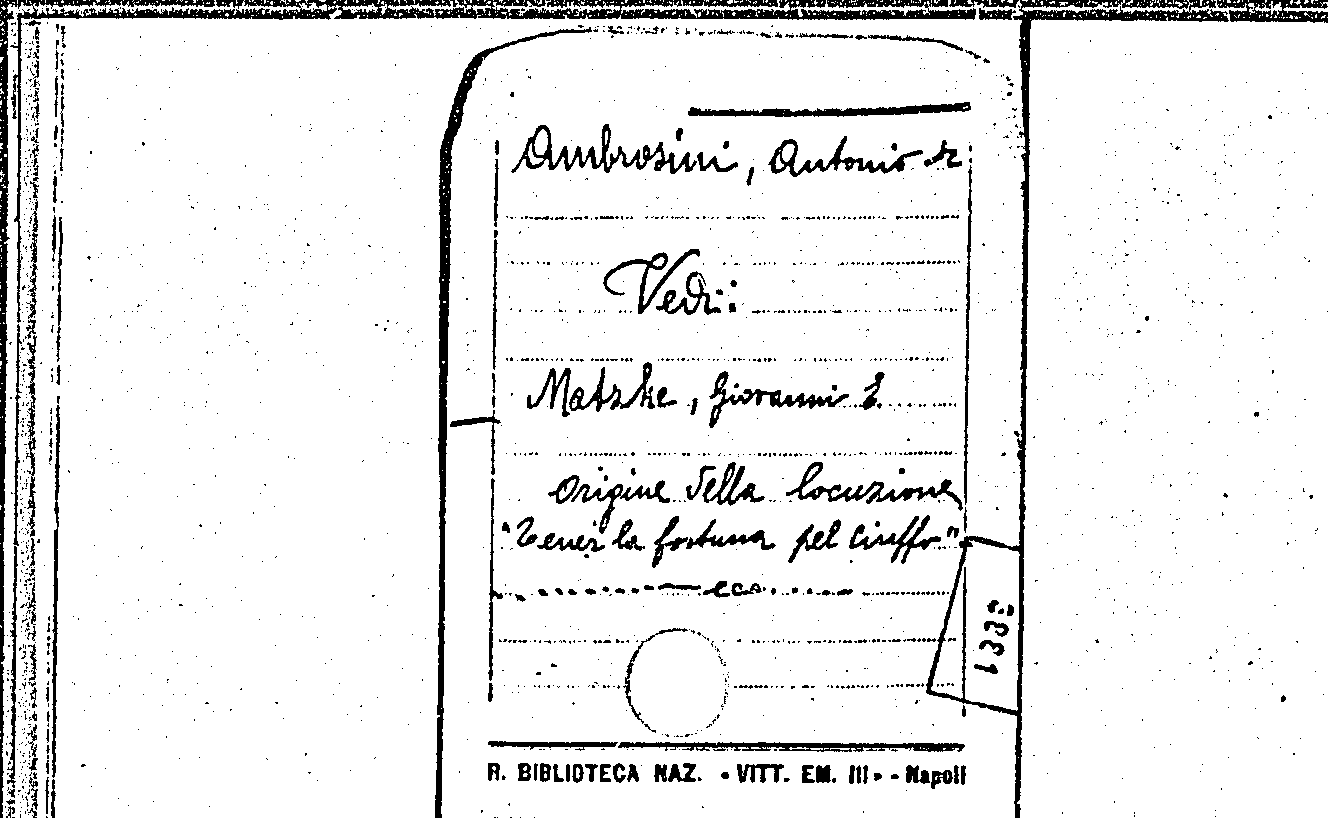 Ambrosini, Antonio
Vedi:
Matzke, Giovanni E.
Origine della locuzione
"Tener la fortuna pel ciuffo"
ecc.
R. BIBLIOTECA NAZ. « VITT. EM. III » - Napoli